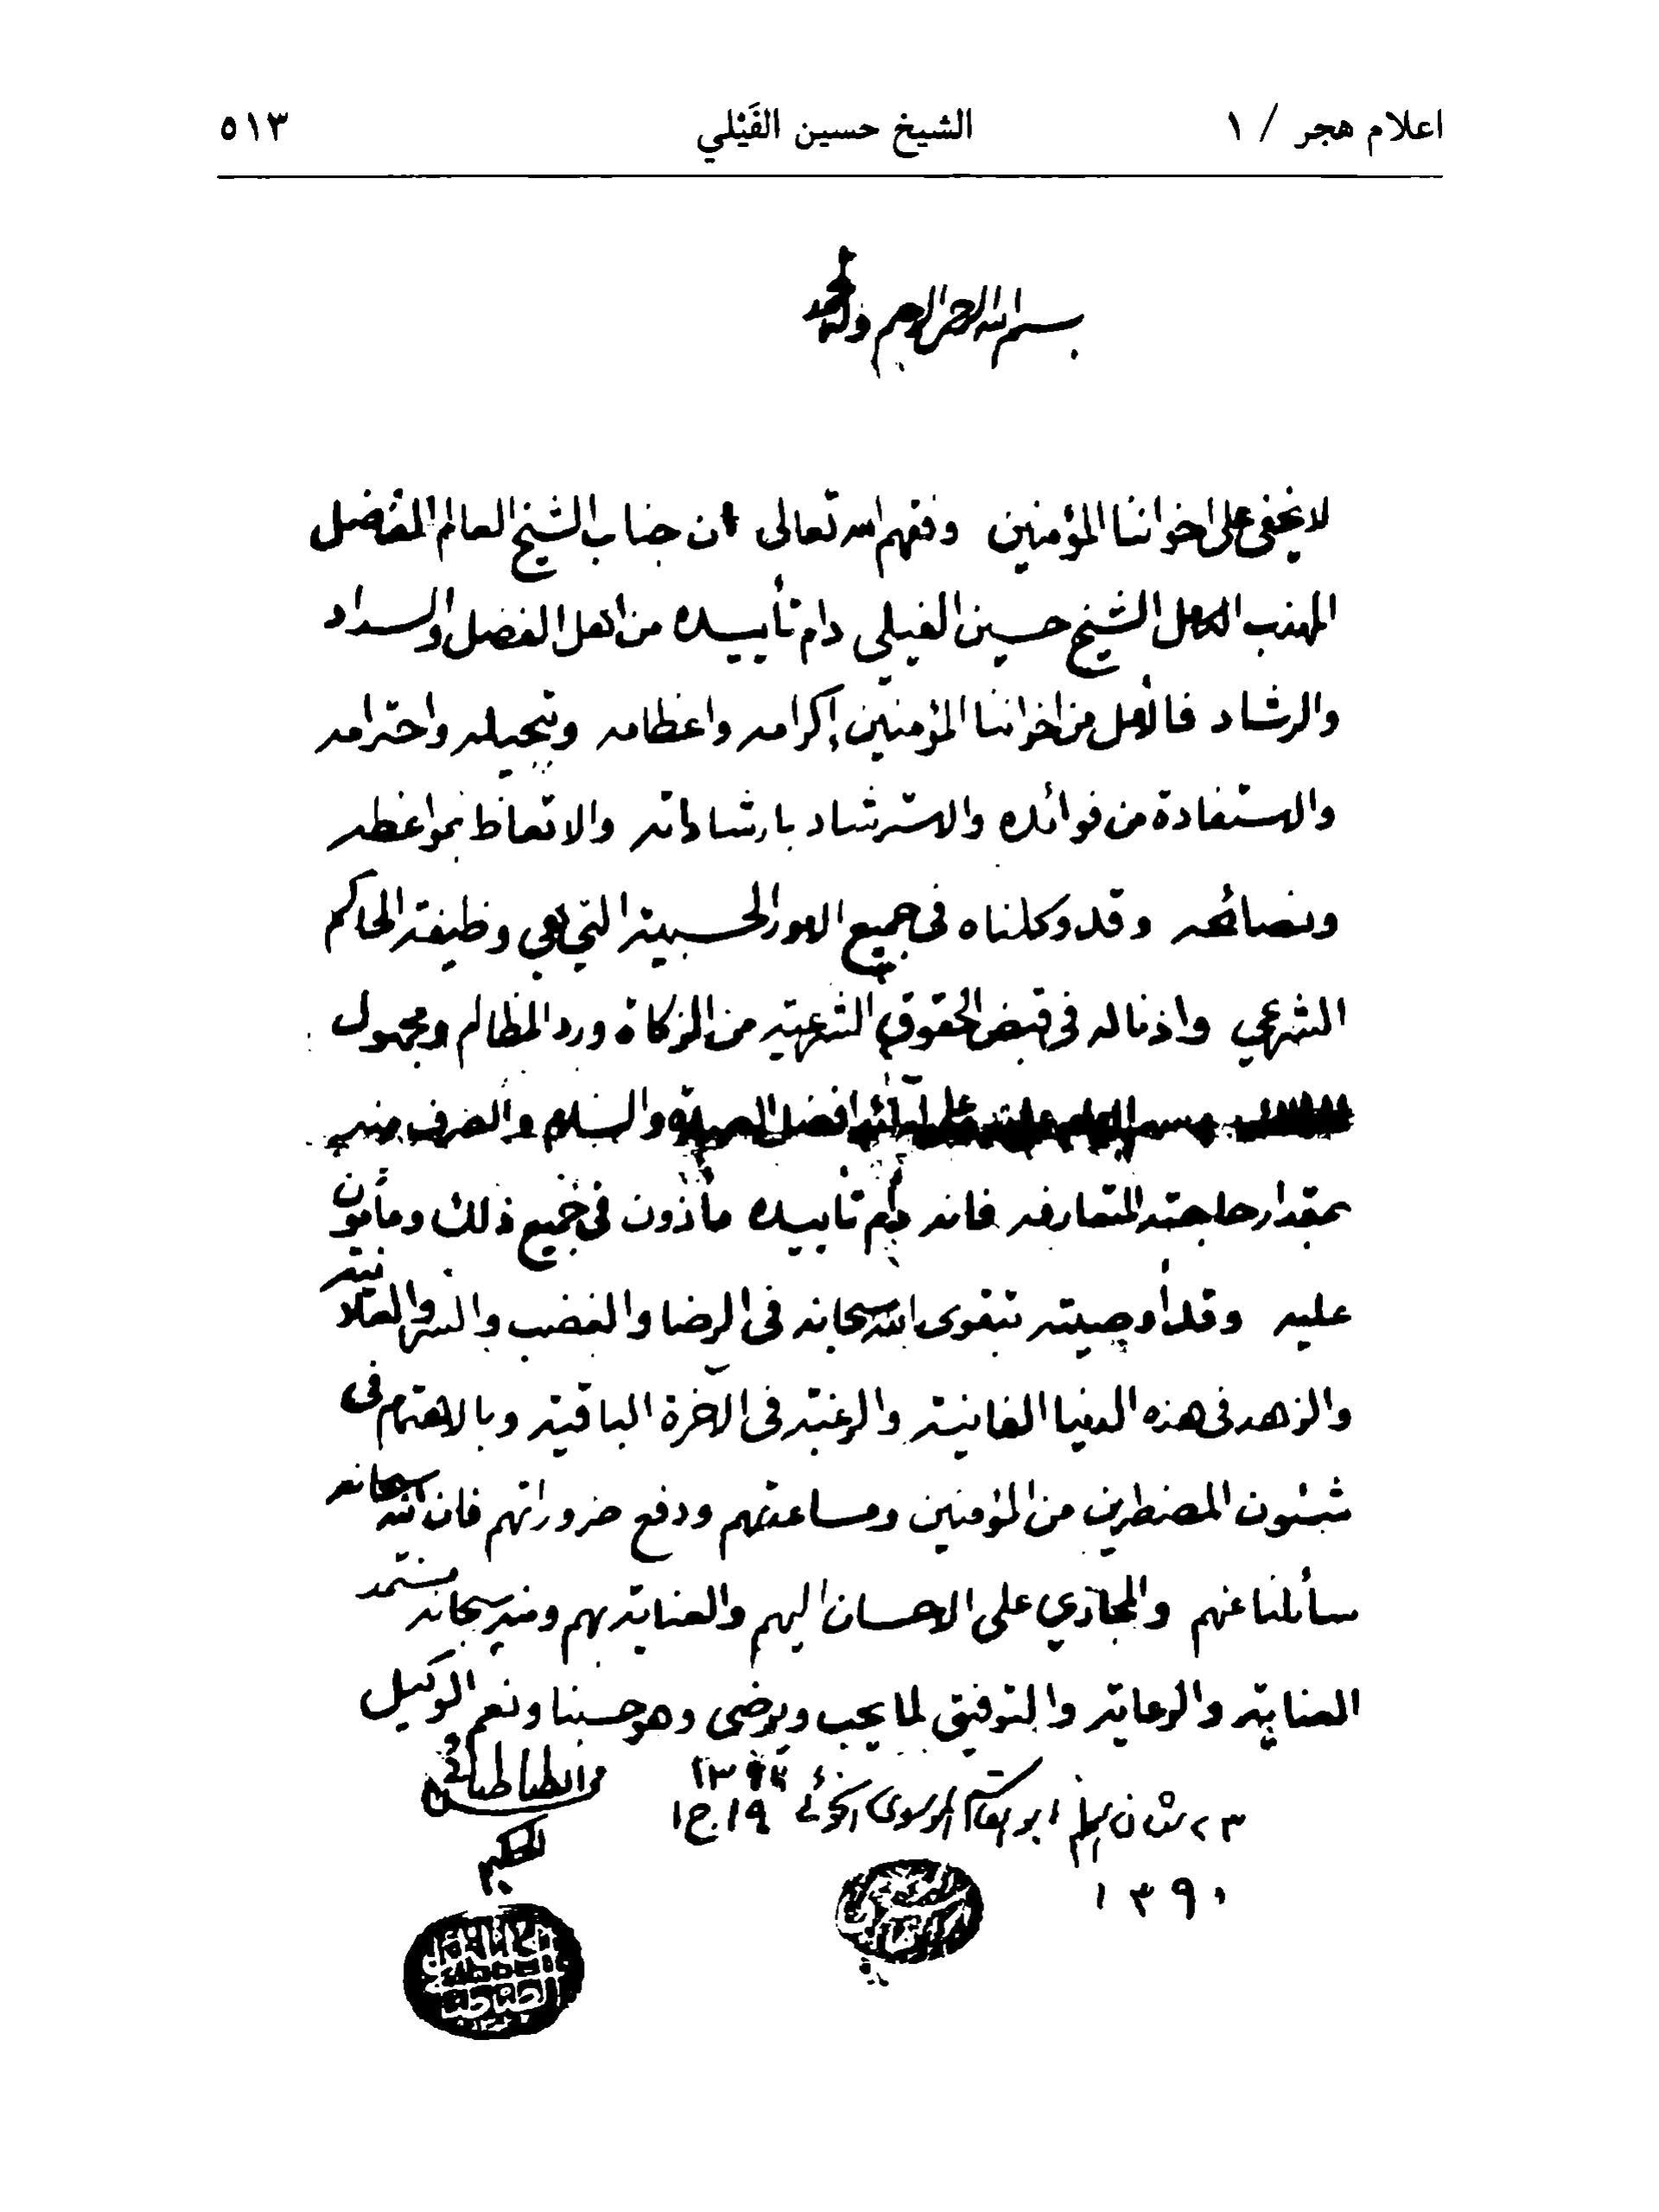 اعلام هجر / ١ الشيخ حسين الفَيْلي ٥١٣
بسم الله الرحمن الرحيم وله الحمد
لا يخفى على اخواننا المؤمنين وفقهم الله تعالى ان جناب الشيخ العالم المفضل
المهذب الكامل الشيخ حسين الفيلي دام تأييده من اهل الفضل والسداد
والرشاد من اخواننا المؤمنين إكرامه واعظامه وتبجيله واحترامه
والاستفادة من فوائده والاسترشاد بارشاداته والاتعاظ بمواعظه
ونصائحه وقد وكلناه في جميع الامور الحسبية التي هي وظيفة الحاكم
الشرعي واذنا له في قبض الحقوق الشرعية من الزكاة ورد المظالم ومجهول
افضل الصلاة والسلام والصرف منه
بمقدار حاجته المتعارفه فانه دام تأييده مأذون في جميع ذلك ومأمون
عليه وقد أوصيته بتقوى الله سبحانه في الرضا والغضب والسر والعلانية
والزهد في هذه الدنيا الفانية والرغبة في الآخرة الباقية وبالاهتمام في
شئون المضطرين من المؤمنين ومساعدتهم ودفع ضروراتهم فان الله سبحانه
سائلنا عنهم والمجازي على الاحسان اليهم والعناية بهم ومنه سبحانه نستمد
العناية والرعاية والتوفيق لما يحب ويرضى وهو حسبنا ونعم الوكيل
محسن الطباطبائي
الحكيم
ابو القاسم الموسوي الخوئي ١٩ ج ١
١٣٩٠